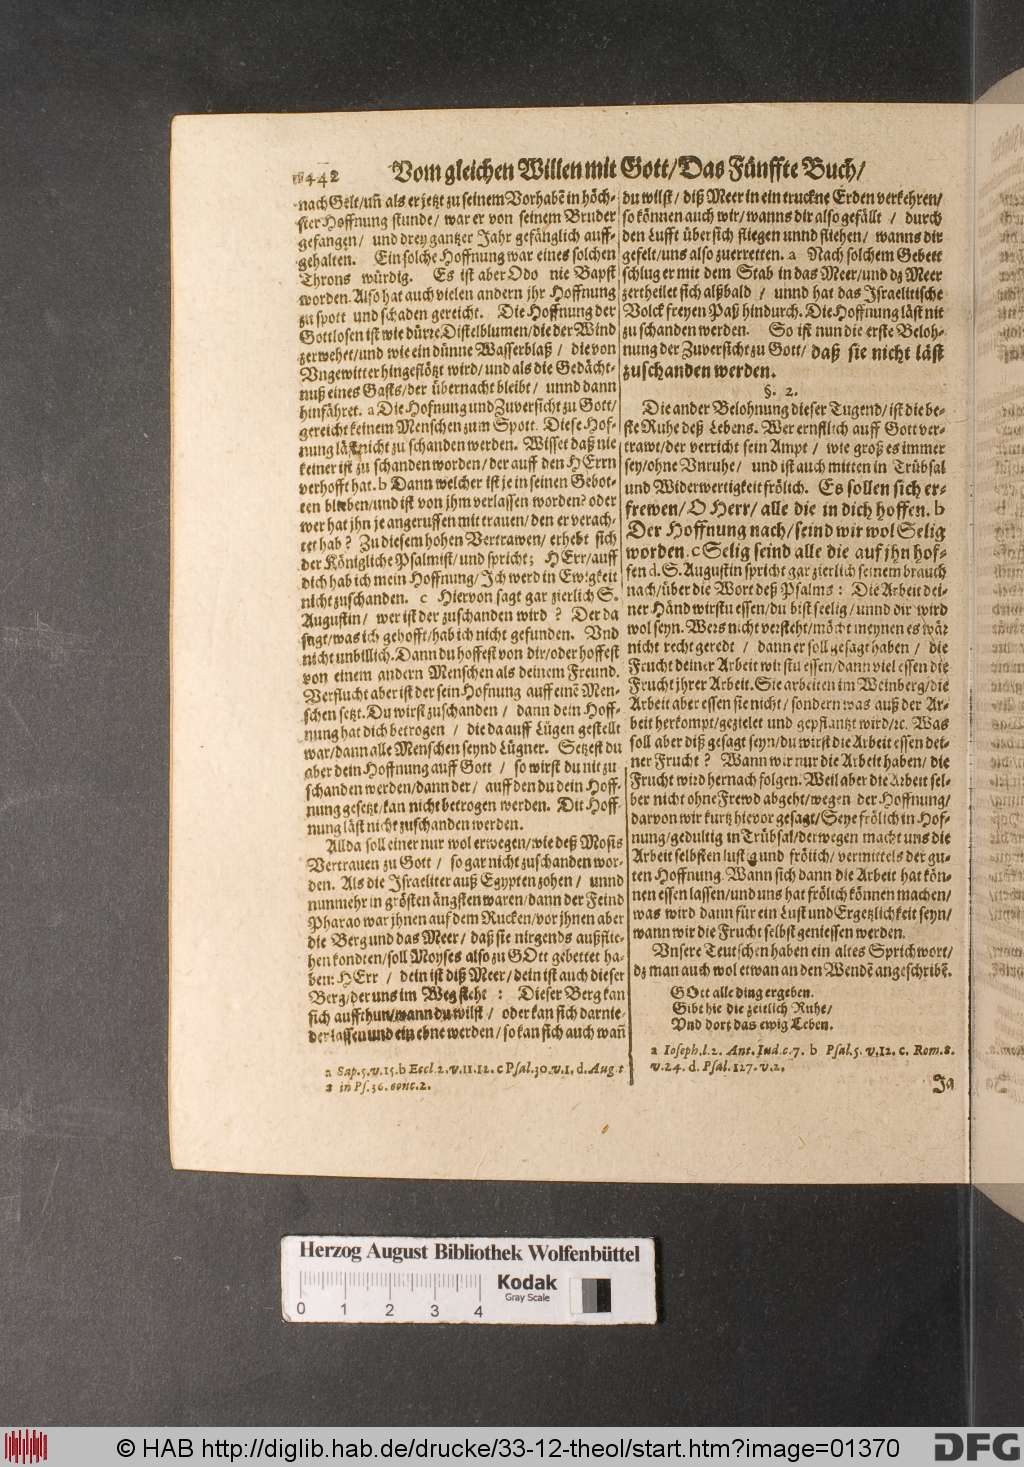 442 Vom gleichen Willen mit Gott/ Das Fünffte Buch/
nach Gelt/ uñ als er jetzt zu seinem Vorhabē in höch-
ster Hoffnung stunde/ war er von seinem Bruder
gefangen/ und drey gantzer Jahr gefänglich auff-
gehalten. Ein solche Hoffnung war eines solchen
Throns würdig. Es ist aber Odo nie Bapst
worden. Also hat auch vielen andern jhr Hoffnung
zu spott und schaden gereicht. Die Hoffnung der
Gottlosen ist wie dürre Distelblumen/ die der Wind
zerwehet/ und wie ein dünne Wasserblaß/ die von
Vngewitter hingeflötzt wird/ und als die Gedächt-
nuß eines Gasts/ der übernacht bleibt/ unnd dann
hinfähret. a Die Hofnung und Zuversicht zu Gott/
gereicht keinem Menschen zum Spott. Diese Hof-
nung läst nicht zu schanden werden. Wisset daß nie
keiner ist zu schanden worden/ der auff den HErrn
verhofft hat. b Dann welcher ist je in seinen Gebot-
ten blieben/ und ist von jhm verlassen worden? oder
wer hat jhn je angeruffen mit trauen/ den er verach-
tet hab? Zu diesem hohen Vertrawen/ erhebt sich
der Königliche Psalmist/ und spricht; HErr/ auff
dich hab ich mein Hoffnung/ Ich werd in Ewigkeit
nicht zuschanden. c Hiervon sagt gar zierlich S.
Augustin/ wer ist der zuschanden wird? Der da
sagt/ was ich gehofft/ hab ich nicht gefunden. Vnd
nicht unbillich. Dann du hoffest von dir/ oder hoffest
von einem andern Menschen als deinem Freund.
Verflucht aber ist der sein Hofnung auff einē Men-
schen setzt. Du wirst zuschanden/ dann dein Hoff-
nung hat dich betrogen/ die da auff Lügen gestellt
war/ dann alle Menschen seynd Lügner. Setzest du
aber dein Hoffnung auff Gott/ so wirst du nit zu
schanden werden/ dann der/ auff den du dein Hoff-
nung gesetzt/ kan nicht betrogen werden. Die Hoff-
nung läst nicht zuschanden werden.
Allda soll einer nur wol erwegen/ wie deß Mosis
Vertrauen zu Gott/ so gar nicht zuschanden wor-
den. Als die Israeliter auß Egypten zohen/ unnd
nunmehr in grösten ängsten waren/ dann der Feind
Pharao war jhnen auf dem Rucken/ vor jhnen aber
die Berg und das Meer/ daß sie nirgends außflie-
hen kondten/ soll Moyses also zu GOtt gebettet ha-
ben: HErr/ dein ist diß Meer/ dein ist auch dieser
Berg/ der uns im Weg steht: Dieser Berg kan
sich auffthun/ wann du wilst/ oder kan sich darnie-
der lassen und ein ebne werden/ so kan sich auch wañ
a Sap. 5. v. 15. b Eccl. 2. v. 11. 12. c Psal. 30. v. 1. d. Aug. t
in Ps. 36. conc. 2.
du wilst/ diß Meer in ein truckne Erden verkehren/
so können auch wir/ wanns dir also gefällt/ durch
den Lufft über sich fliegen unnd fliehen/ wanns dir
gefelt/ uns also zuerretten. a Nach solchem Gebett
schlug er mit dem Stab in das Meer/ und dz Meer
zertheilet sich alßbald/ unnd hat das Israelitische
Volck freyen Paß hindurch. Die Hoffnung läst nit
zu schanden werden. So ist nun die erste Beloh-
nung der Zuversicht zu Gott/ daß sie nicht läst
zuschanden werden.
§. 2.
Die ander Belohnung dieser Tugend/ ist die be-
ste Ruhe deß Lebens. Wer ernstlich auff Gott ver-
trawt/ der verricht sein Ampt/ wie groß es immer
sey/ ohne Vnruhe/ und ist auch mitten in Trübsal
und Widerwertigkeit frölich. Es sollen sich er-
frewen/ O Herr/ alle die in dich hoffen. b
Der Hoffnung nach/ seind wir wol Selig
worden. c Selig seind alle die auf jhn hof-
fen d. S. Augustin spricht gar zierlich seinem brauch
nach/ über die Wort deß Psalms: Die Arbeit dei-
ner Händ wirstu essen/ du bist seelig/ unnd dir wird
wol seyn. Wers nicht versteht/ möcht meynen es wär
nicht recht geredt/ dann er soll gesagt haben/ die
Frucht deiner Arbeit wirstu essen/ dann viel essen die
Frucht jhrer Arbeit. Sie arbeiten im Weinberg/ die
Arbeit aber essen sie nicht/ sondern was auß der Ar-
beit herkompt/ gezielet und gepflantzt wird/ ꝛc. Was
soll aber diß gesagt seyn/ du wirst die Arbeit essen dei-
ner Frucht? Wann wir nur die Arbeit haben/ die
Frucht wird hernach folgen. Weil aber die Arbeit sel-
ber nicht ohne Frewd abgeht/ wegen der Hoffnung/
darvon wir kurtz hievor gesagt/ Seye frölich in Hof-
nung/ gedultig in Trübsal/ derwegen macht uns die
Arbeit selbsten lustig und frölich/ vermittels der gu-
ten Hoffnung. Wann sich dann die Arbeit hat kön-
nen essen lassen/ und uns hat frölich können machen/
was wird dann für ein Lust und Ergetzlichkeit seyn/
wann wir die Frucht selbst geniessen werden.
Vnsere Teutschen haben ein altes Sprichwort/
dz man auch wol etwan an den Wendē angeschribē.
GOtt alle ding ergeben.
Gibt hie die zeitlich Ruhe/
Vnd dort das ewig Leben.
a Ioseph. l. 2. Ant. Iud. c. 7. b Psal. 5. v. 12. c. Rom. 8.
v. 24. d. Psal. 127. v. 2.
Ja
Herzog August Bibliothek Wolfenbüttel
0 1 2 3 4
Kodak
Gray Scale
© HAB http://diglib.hab.de/drucke/33-12-theol/start.htm?image=01370
DFG